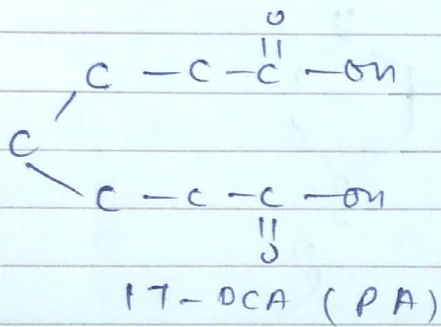 O
||
C — C — C — OH
C
C — C — C — OH
||
O
17-DCA (PA)